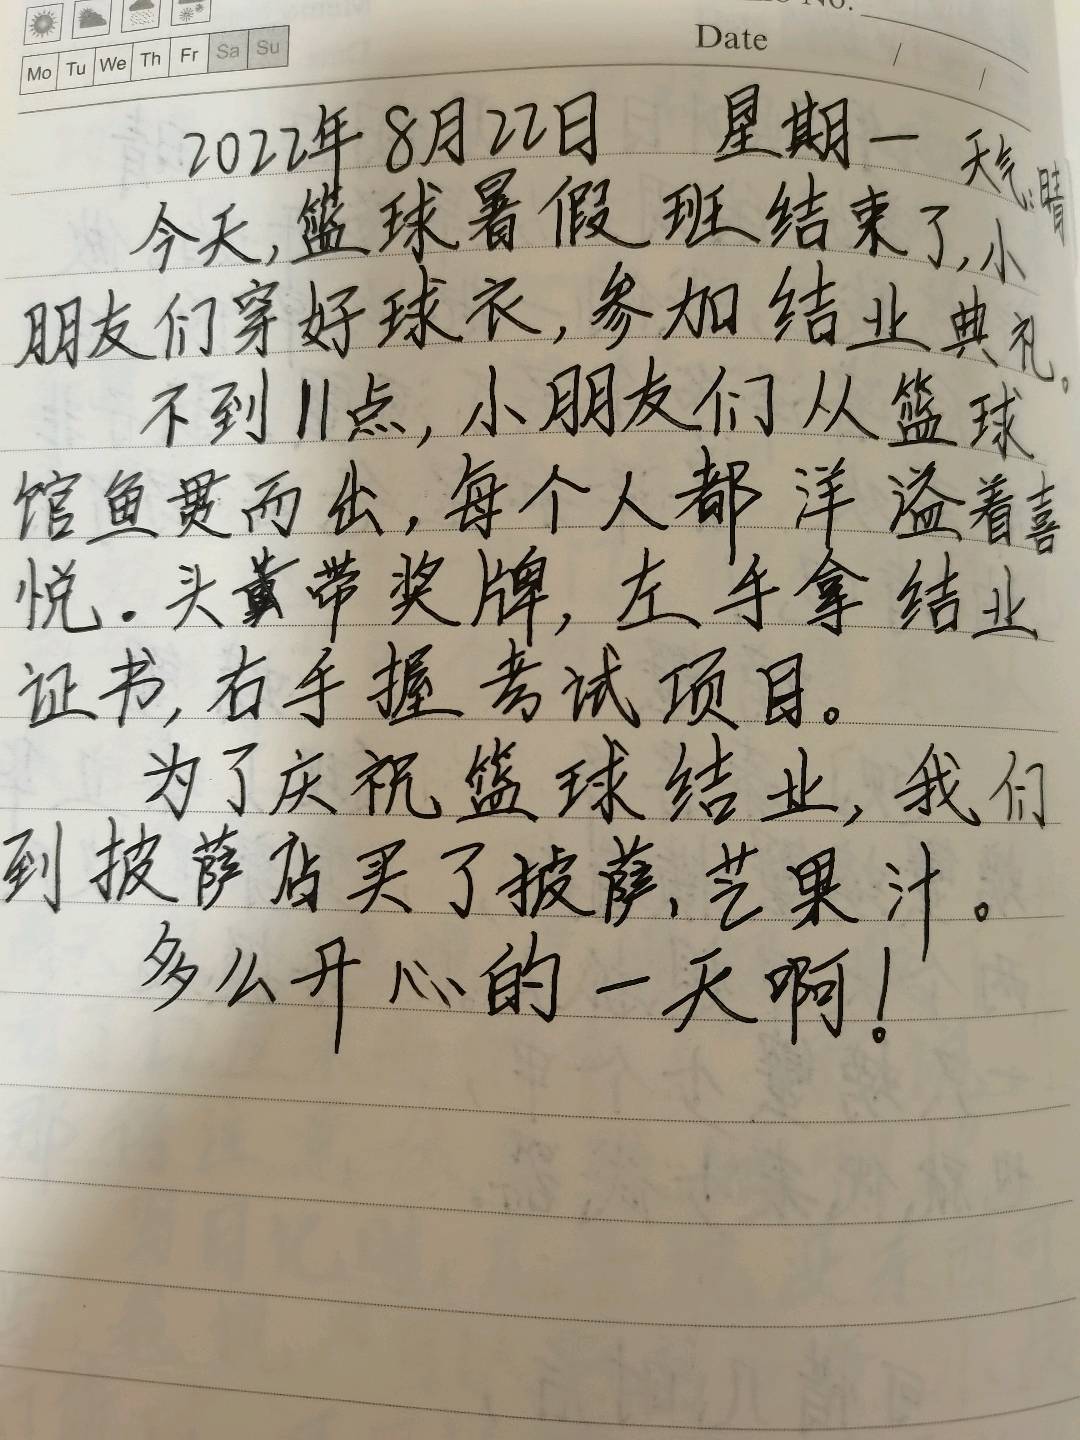 No.
Date / /
Mo Tu We Th Fr Sa Su
2022年8月22日 星期一 天气:晴
今天,篮球暑假班结束了,小
朋友们穿好球衣,参加结业典礼。
不到11点,小朋友们从篮球
馆鱼贯而出,每个人都洋溢着喜
悦.头带奖牌,左手拿结业
证书,右手握考试项目。
为了庆祝篮球结业,我们
到披萨店买了披萨,芝果汁。
多么开心的一天啊!